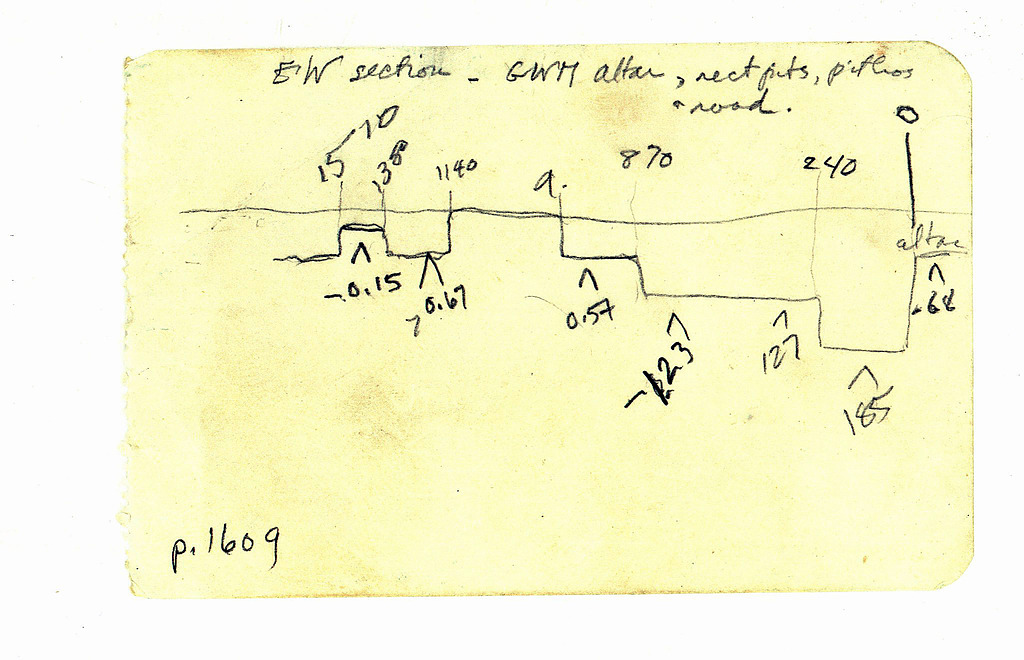 EW section - GWM altar, rect pits, pithos
+ road.
0
15 70
138
1140
a.
870
240
altar
-0.15
-0.67
0.57
-123
127
-.68
185
p.1609